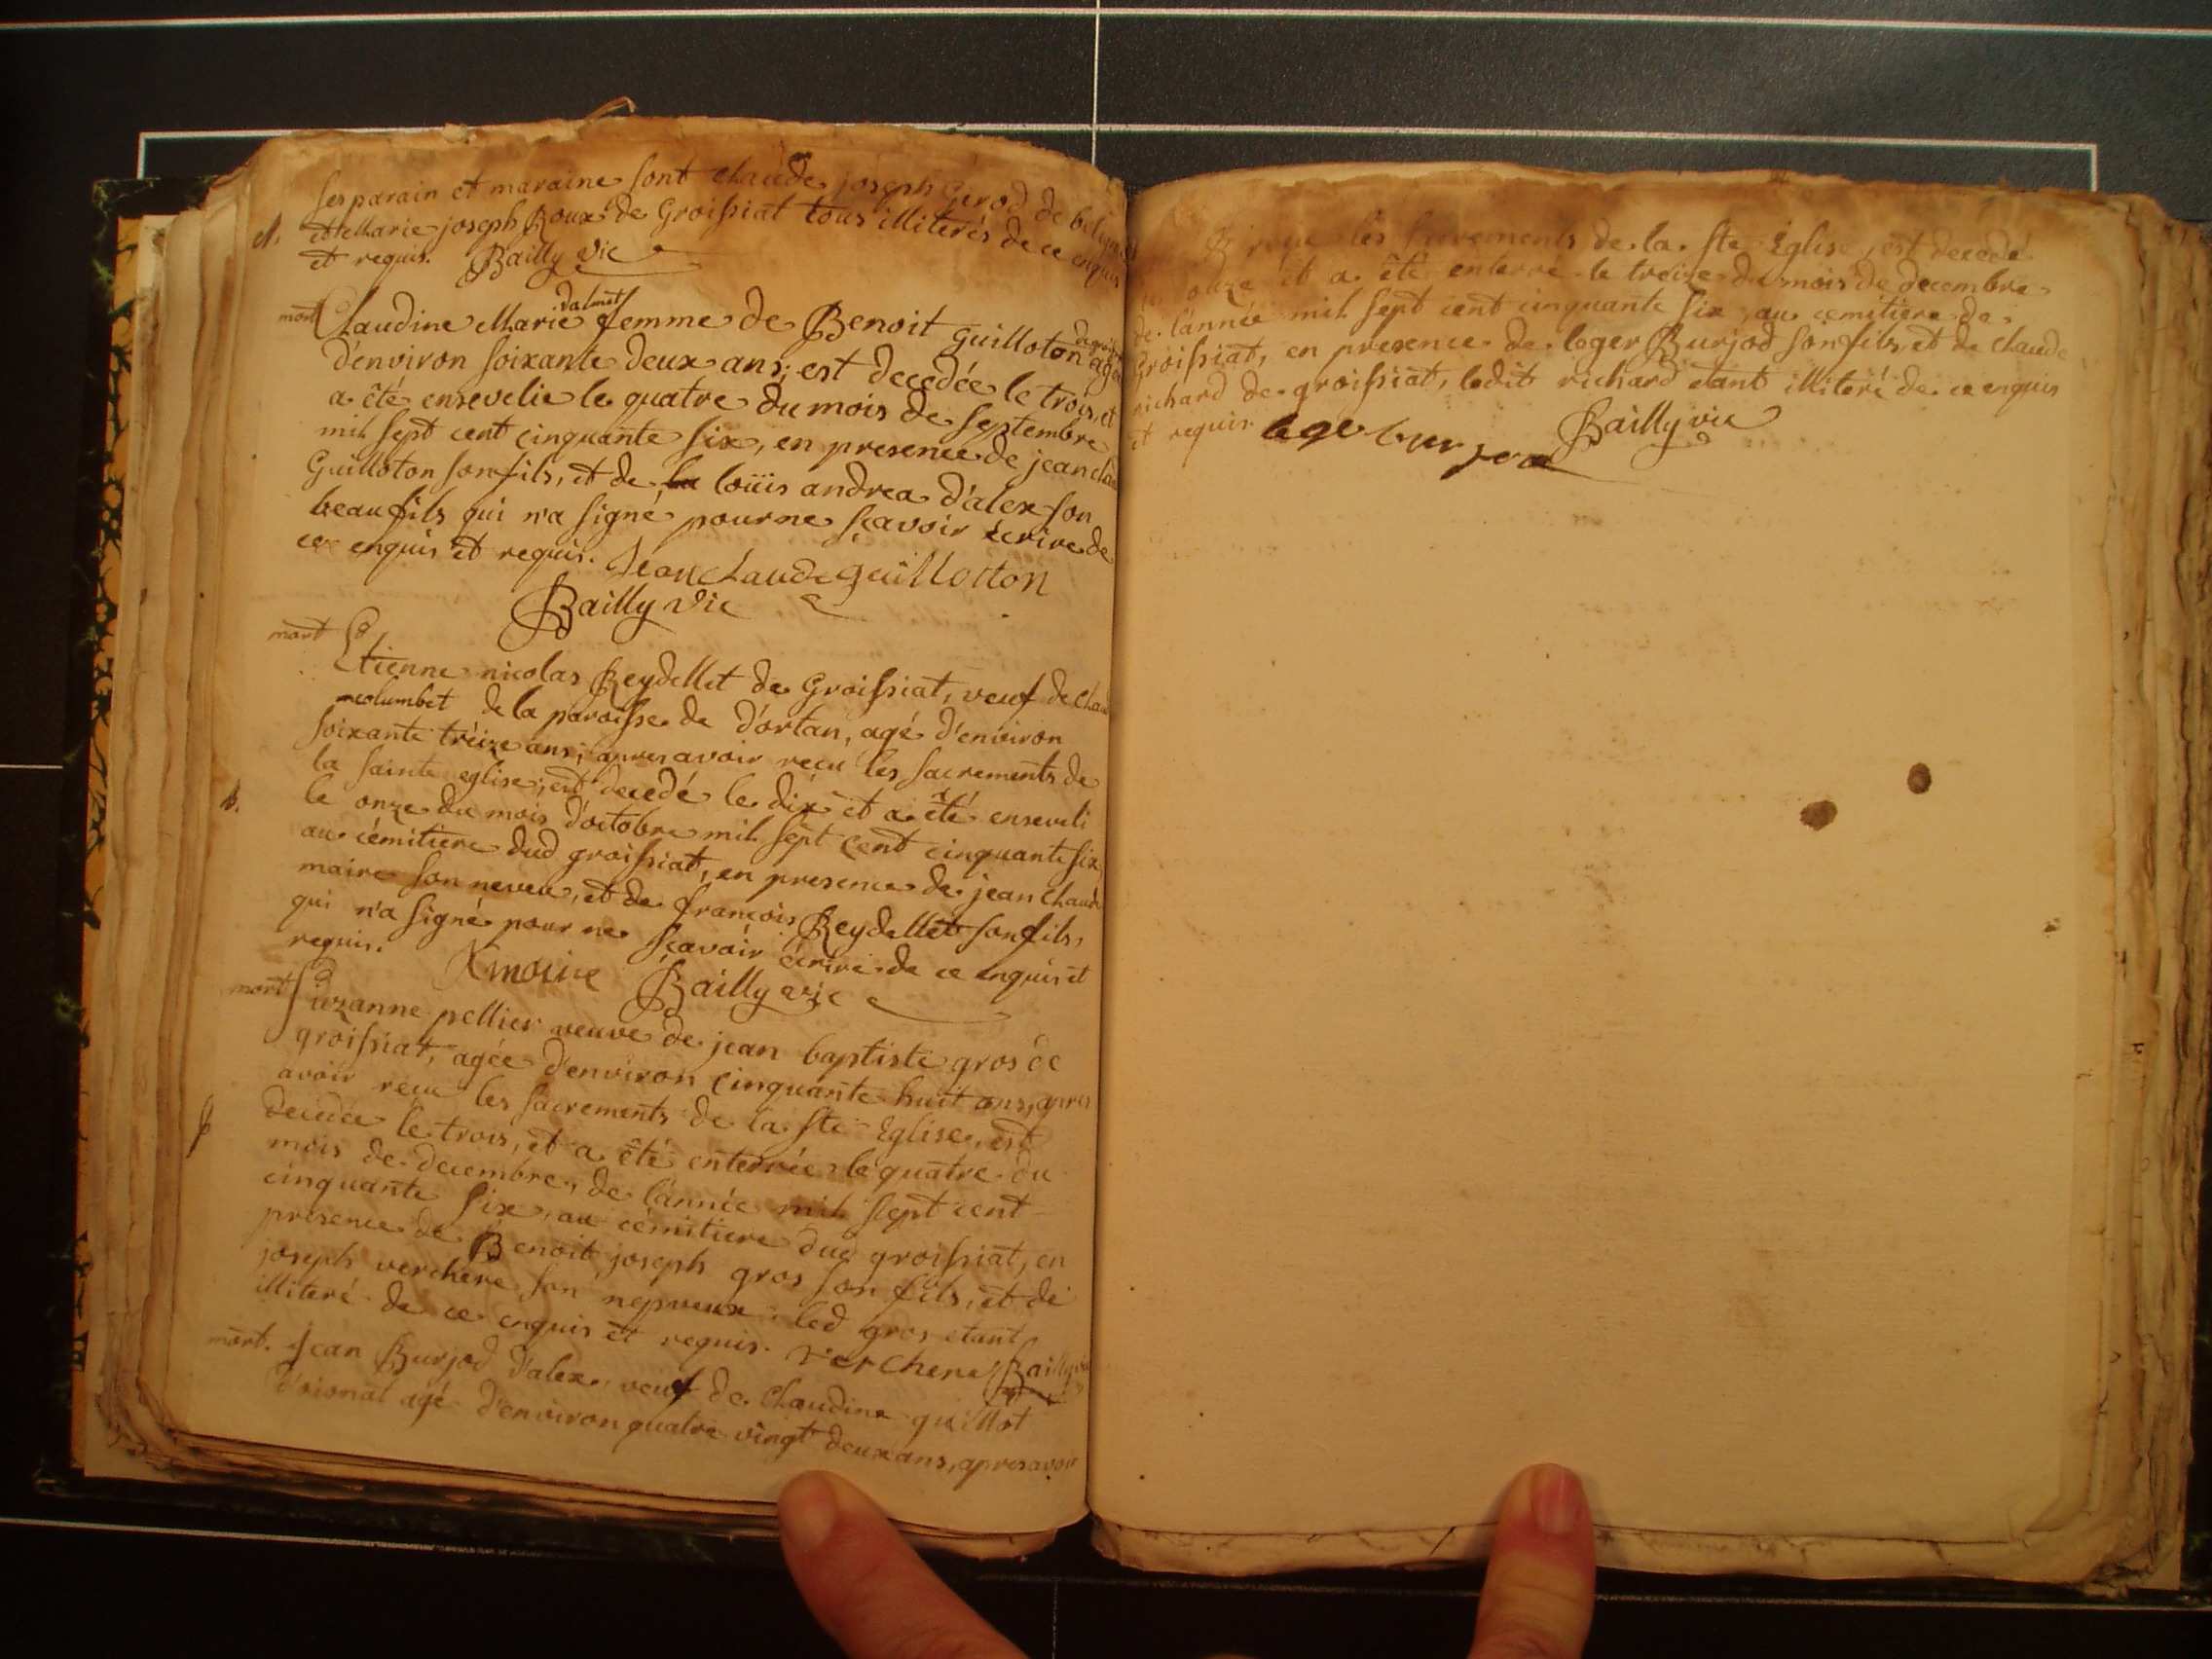 ses parain et maraine sont claude joseph gerod de
et Marie joseph Roux de Groissiat tous illiterés de ce enquis
et requis. Bailly vic
mort Claudine Marie dalmet femme de Benoit Guilloton agée
d'environ soixante deux ans, est decedée le trois, et
a été ensevelie le quatre du mois de septembre
mil sept cent cinquante six, en presence de jean clau
Guilloton son fils, et de loüis andrea d'alex son
beau fils qui n'a signé pour ne sçavoir écrire de
ce enquis et requis. Jean claude guillotton
Bailly vic
mort Etienne nicolas Reydellet de Groissiat, veuf de clau
columbet de la paroisse de d'ortan, agé d'environ
soixante treize ans, apres avoir recu les sacrements de
la sainte eglise, est decedé le dix et a été enseveli
le onze du mois d'octobre mil sept cent cinquante six
au cémitiere dud groissiat, en presence de jean claude
maire son neveu, et de françois Reydellet son fils,
qui n'a signé pour ne sçavoir écrire de ce enquis et
requis. maire Bailly vic
mort Suzanne pellier veuve de jean baptiste gros de
groissiat, agée d'environ cinquante huit ans, apres
avoir recu les sacrements de la ste Eglise, est
decedée le trois, et a été enterrée le quatre du
mois de decembre, de l'année mil sept cent
cinquante six, au cémitiere dud groissiat, en
presence de Benoit joseph gros son fils, et de
joseph verchere son nepveux, led gros etant
illiteré de ce enquis et requis. verchere Bailly vic
mort. Jean Burjod d'alex, veuf de Claudine guillot
d'oionat agé d'environ quatre vingt deux ans, apres avoir
reçu les sacrements de la ste Eglise, est decedé
onze et a été enterré le treize du mois de decembre
de l'année mil sept cent cinquante six au cemitiere de
Groissiat, en presence de loger Burjod son fils, et de claude
richard de groissiat, ledit richard etant illiteré de ce enquis
et requis Bailly vic